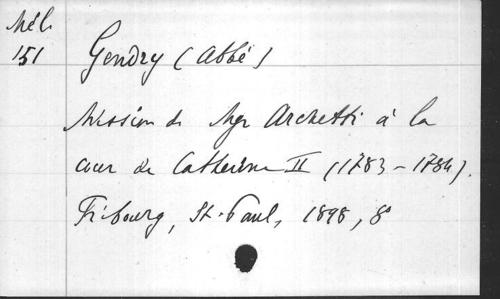 Mél.
151
Gendry (Abbé)
Mission de Mgr Archetti à la
cour de Catherine II (1783-1784).
Fribourg, St-Paul, 1898, 8°